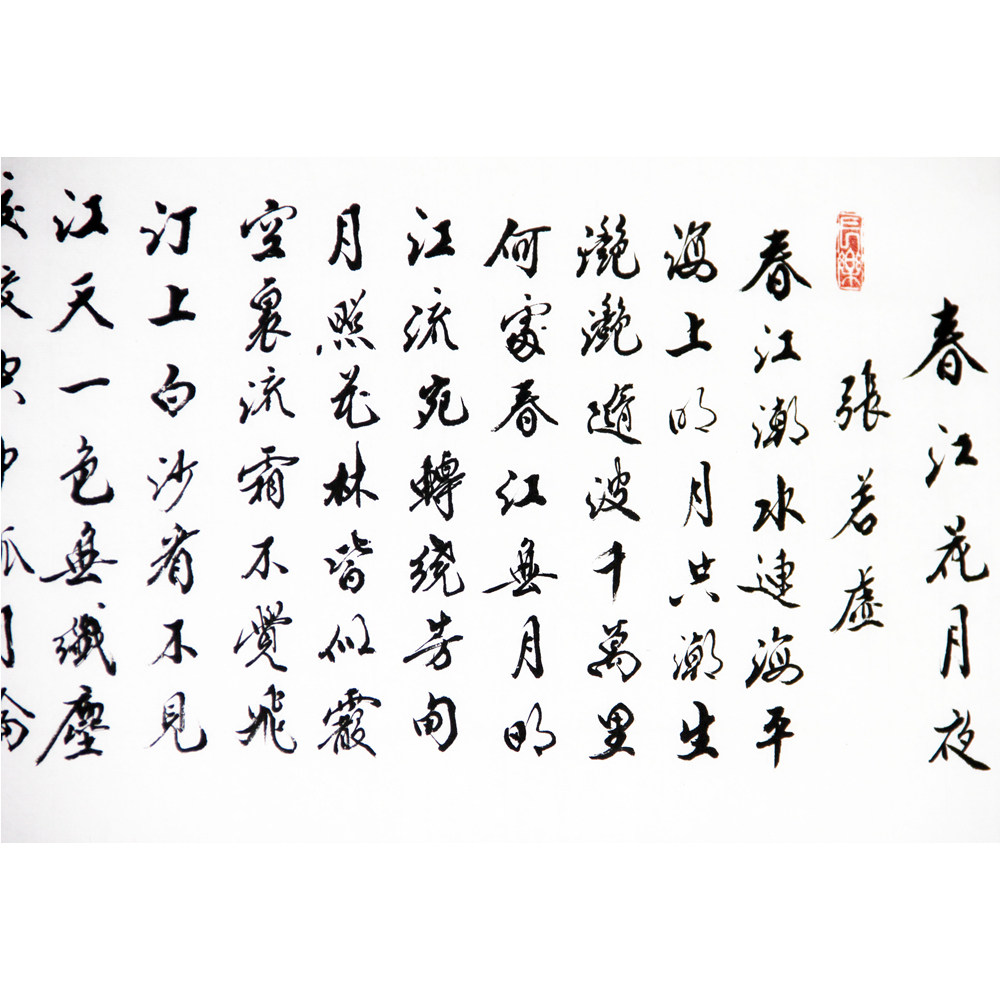 春江花月夜
張若虛
春江潮水連海平
海上明月共潮生
灩灩隨波千萬里
何處春江無月明
江流宛轉繞芳甸
月照花林皆似霰
空裏流霜不覺飛
汀上白沙看不見
江天一色無纖塵